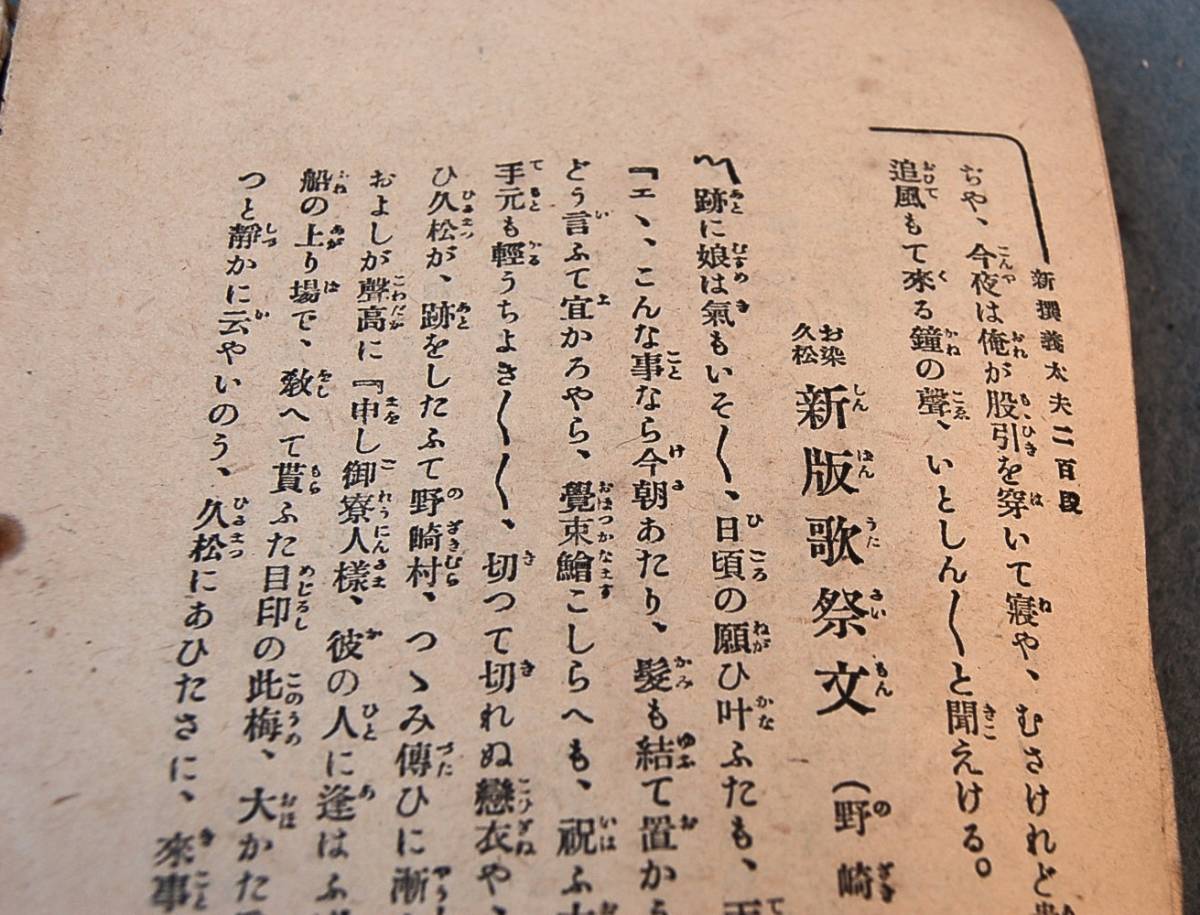 新撰義太夫二百段
ぢや、今夜は俺が股引を穿いて寢や、むさけれど
追風もて來る鐘の聲、いとしん〳〵と聞えける。
お染
久松
新版歌祭文
(野崎
〽跡に娘は氣もいそ〳〵、日頃の願ひ叶ふたも、天
『エヽ、こんな事なら今朝あたり、髮も結て置かう
どう言ふて宜かろやら、覺束鱠こしらへも、祝ふ大
手元も輕うちよき〳〵〳〵、切つて切れぬ戀衣や、
ひ久松が、跡をしたふて野崎村、つゝみ傳ひに漸
およしが聲高に『申し御寮人樣、彼の人に逢はふ
船の上り場で、敎へて貰ふた目印の此梅、大かた
つと靜かに云やいのう、久松にあひたさに、來事